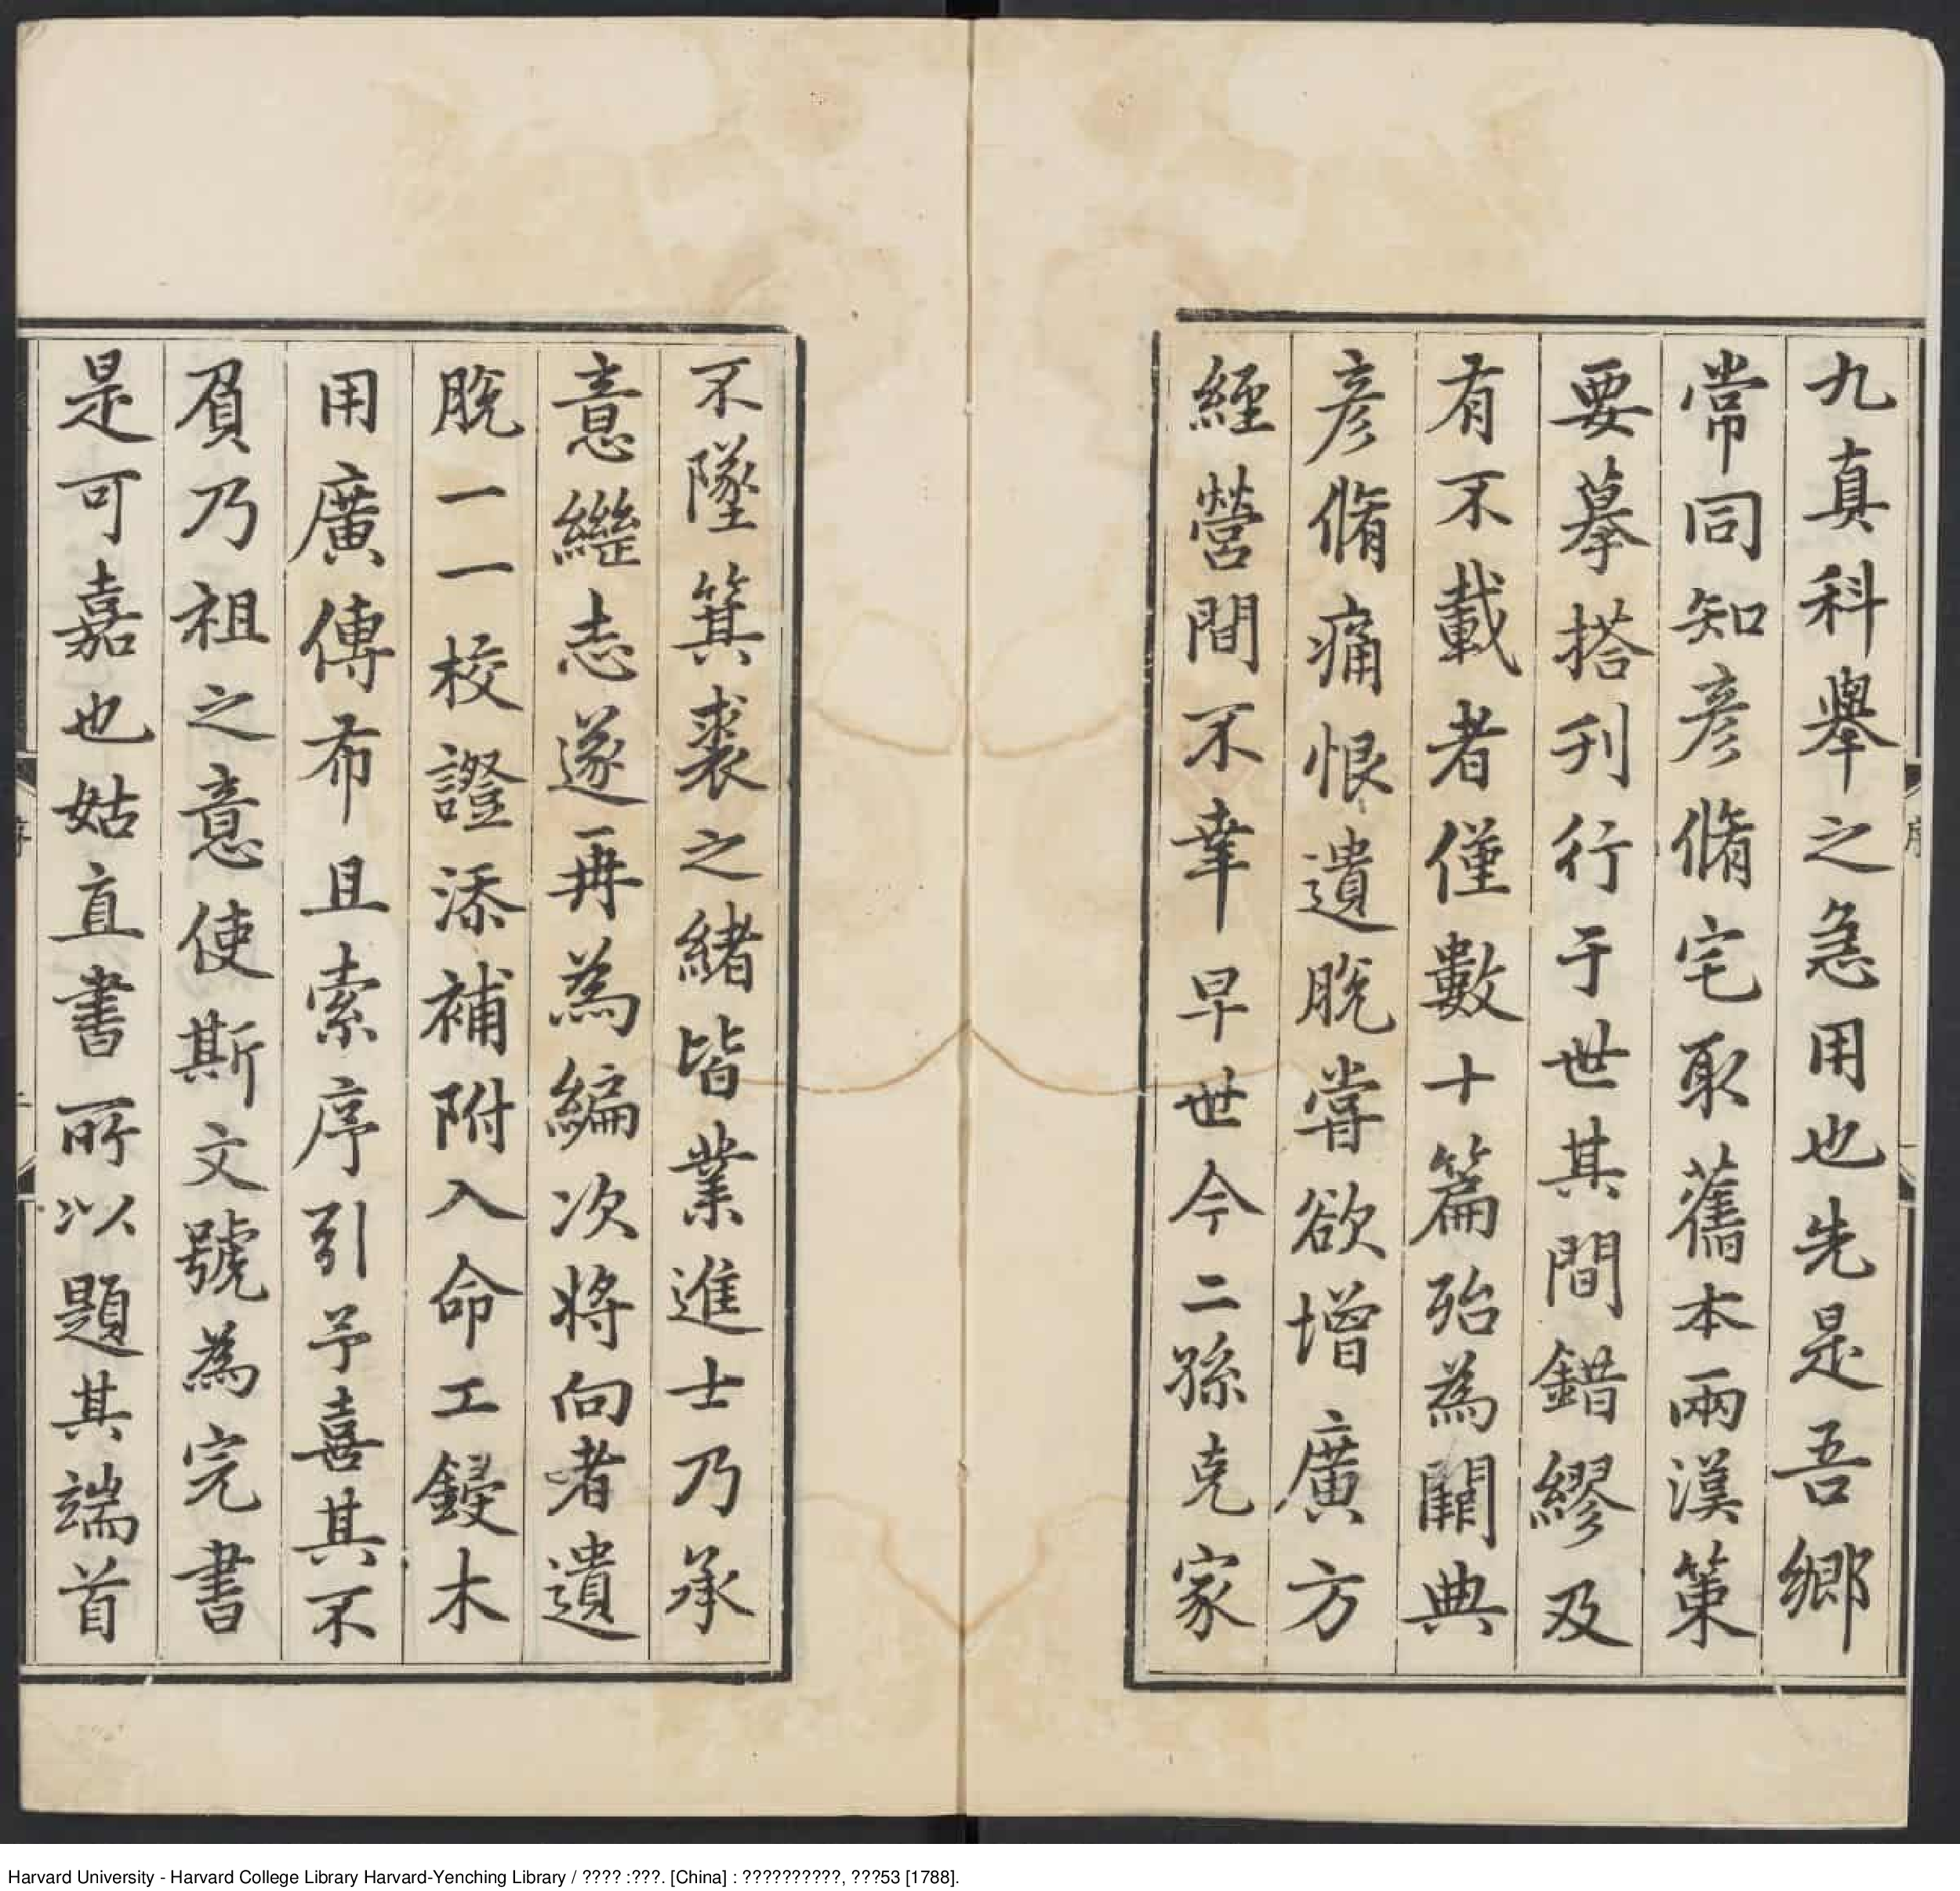 九真科舉之急用也先是吾鄉
常同知彥脩宅取舊本兩漢策
要摹搭刊行于世其間錯繆及
有不載者僅數十篇殆為闕典
彥脩痛恨遺脫嘗欲增廣方
經營間不幸早世今二孫克家
不墜箕裘之緒皆業進士乃承
意繼志遂再為編次將向者遺
脫一一校證添補附入命工鋟木
用廣傳布且索序引予喜其不
負乃祖之意使斯文號為完書
是可嘉也姑直書所以題其端首
序
Harvard University - Harvard College Library Harvard-Yenching Library / ???? :???. [China] : ??????????, ???53 [1788].